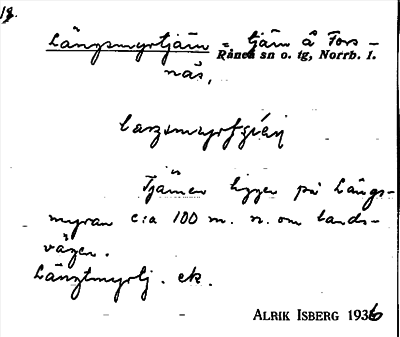 19.
Långsmyrtjärn = tjärn å Fors-
Råneå sn o. tg, Norrb. l.
näs,
Tjärnen ligger på Långs-
myran c:a 100 m. n. om lands-
vägen.
Långtmyrtj. ek.
ALRIK ISBERG 1936